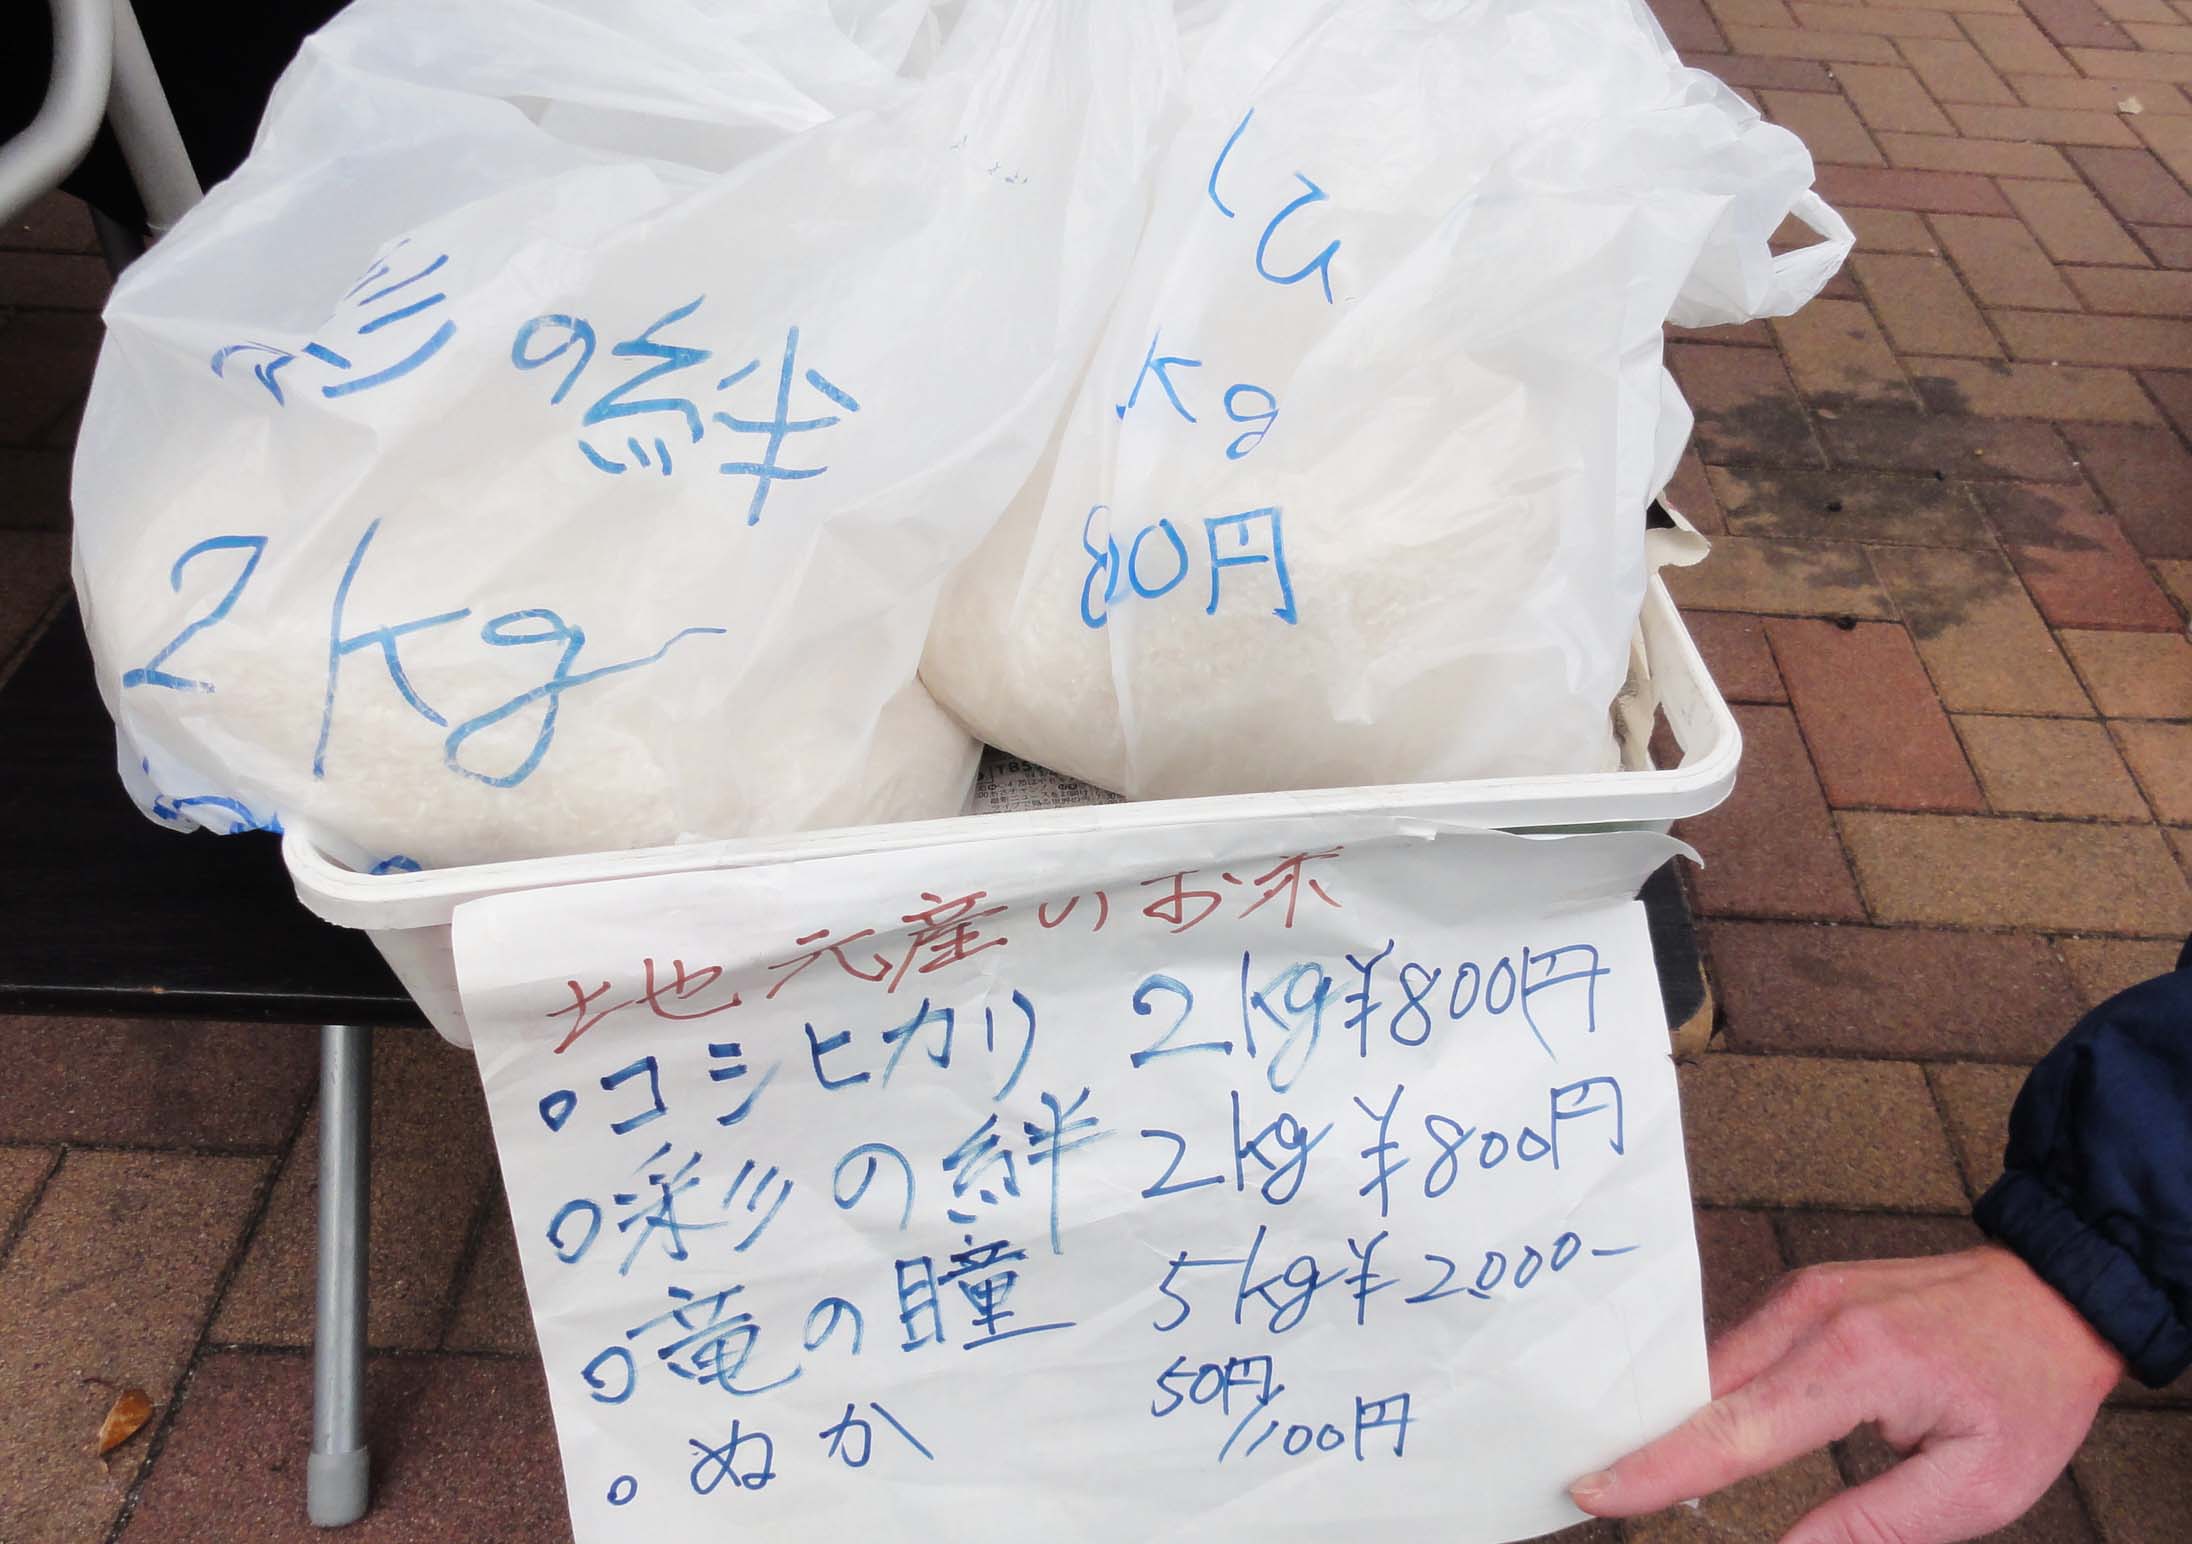 彩の絆
2kg
kg
80円
TBS
地元産のお米
・コシヒカリ 2kg¥800円
・彩の絆 2kg¥800円
・竜の瞳 5kg¥2000-
・ぬか 50円/100円